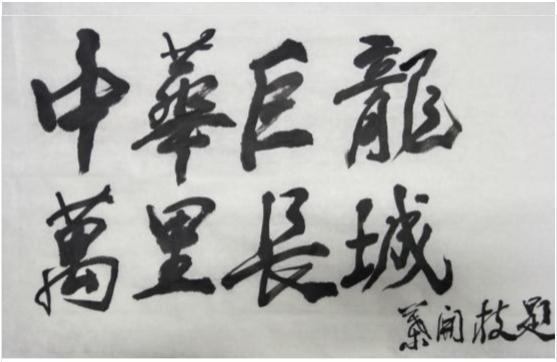 中華巨龍
萬里長城
葉開枝題